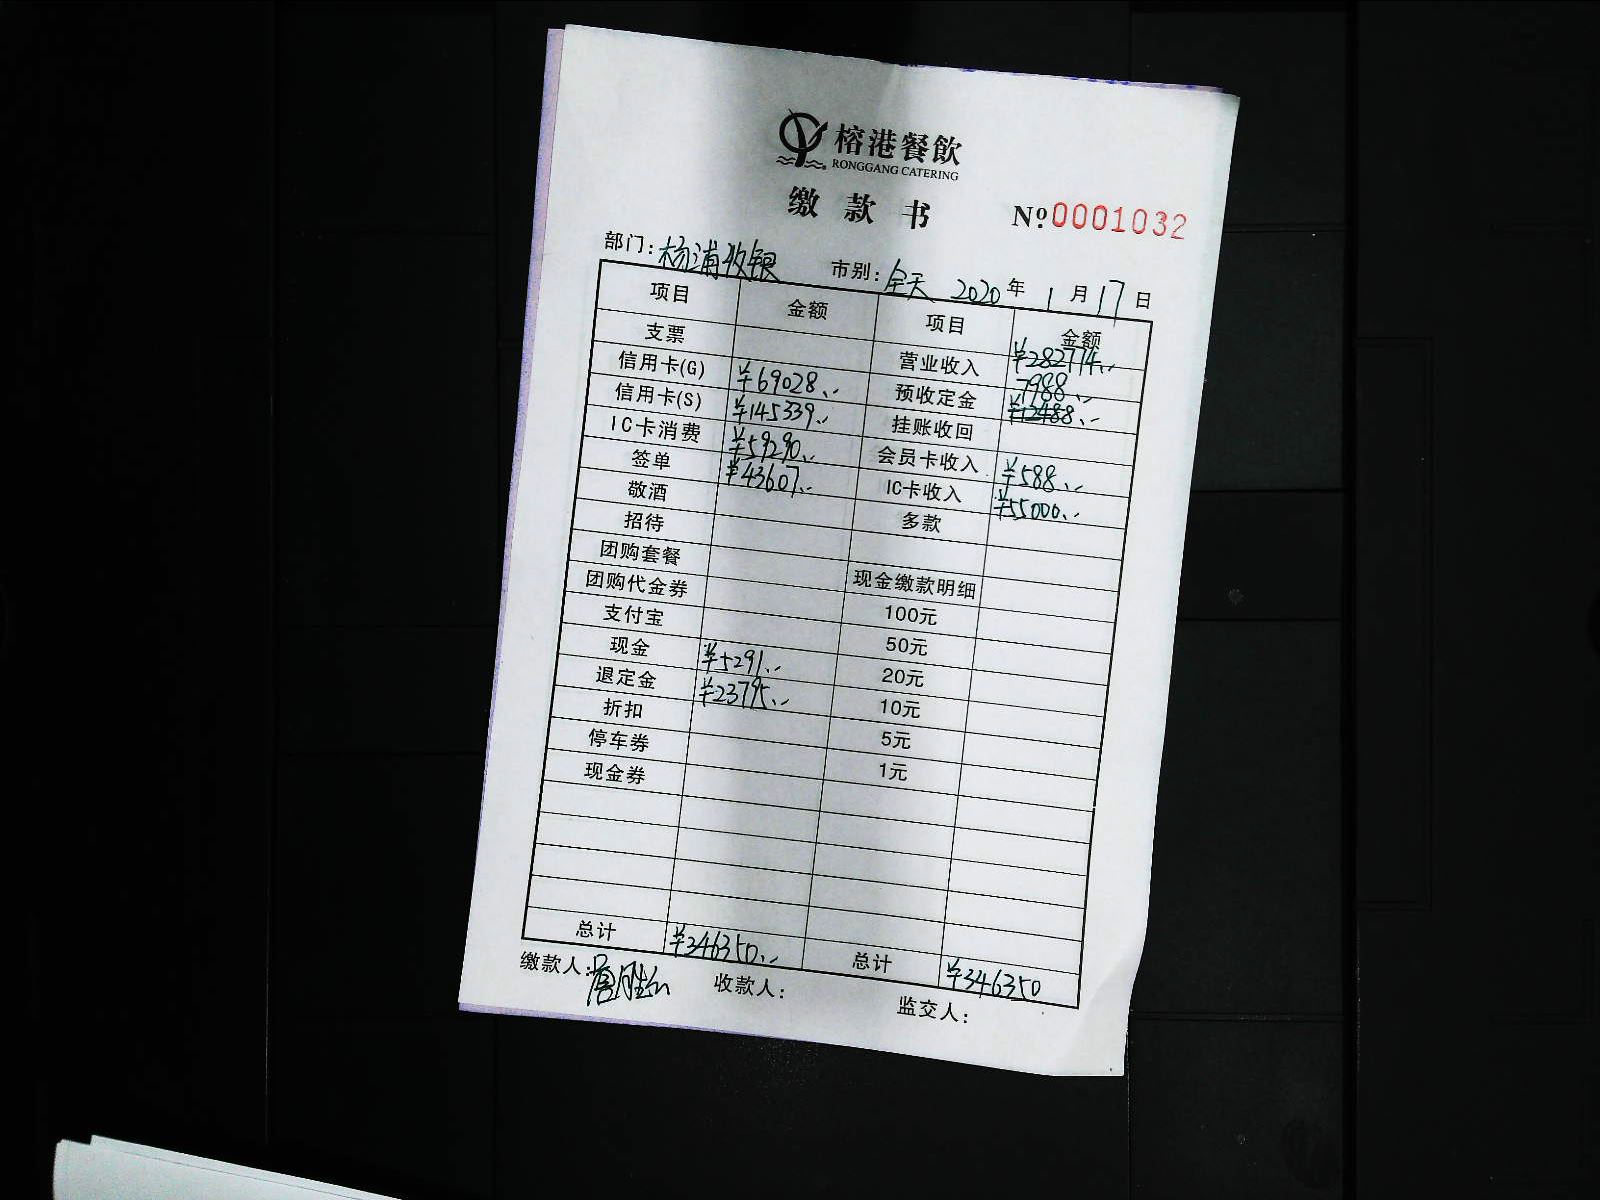 榕港餐飲
RONGGANG CATERING
缴款书 №0001032
部门:杨浦收银 市别:全天 2020年1月17日
项目 金额 项目 金额
支票 营业收入 ¥282774.-
信用卡(G) ¥69028.- 预收定金 7988.- ¥12488.-
信用卡(S) ¥145339.- 挂账收回
IC卡消费 ¥59290.- 会员卡收入 ¥588.-
签单 ¥43607.- IC卡收入 ¥55000.-
敬酒 多款
招待
团购套餐 现金缴款明细
团购代金券 100元
支付宝 50元
现金 ¥5291.- 20元
退定金 ¥23795.- 10元
折扣 5元
停车券 1元
现金券
总计 ¥346350.- 总计 ¥346350
缴款人: 收款人: 监交人: